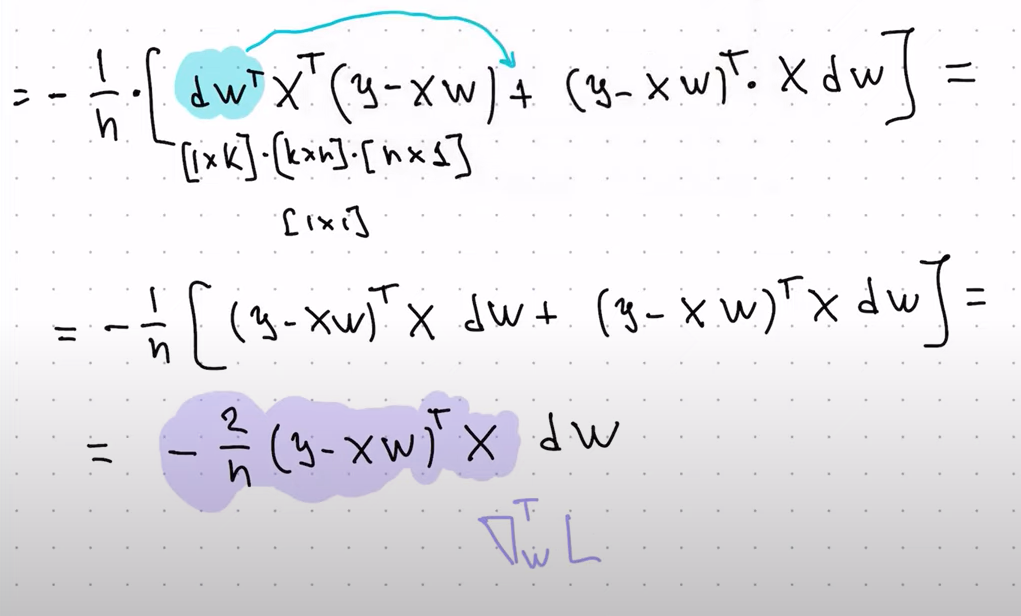 = - 1/n · [ dw^T X^T (y - Xw) + (y - Xw)^T · X dw ] =
[1×k]·[k×n]·[n×1]
[1×1]
= - 1/n [ (y - Xw)^T X dw + (y - Xw)^T X dw ] =
= - 2/n (y - Xw)^T X dw
∇_w^T L